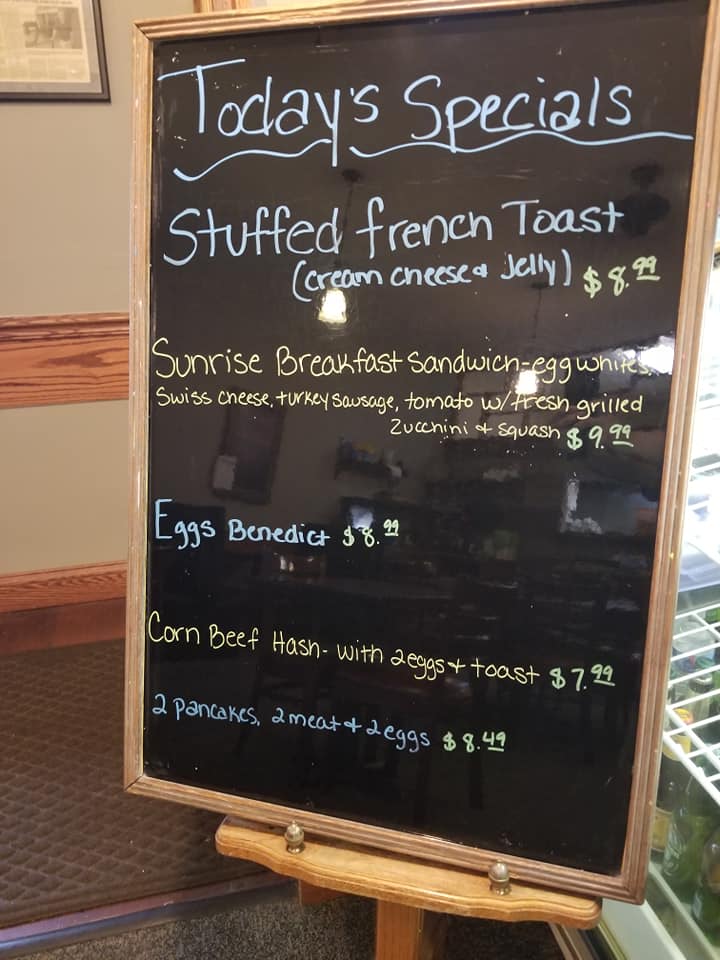 Today's Specials
Stuffed french Toast
(cream cheese & Jelly) $8.99
Sunrise Breakfast Sandwich-egg whites,
Swiss cheese, turkey sausage, tomato w/fresh grilled
Zucchini & squash $9.99
Eggs Benedict $8.99
Corn Beef Hash- with 2 eggs & toast $7.99
2 Pancakes, 2 meat & 2 eggs $8.49